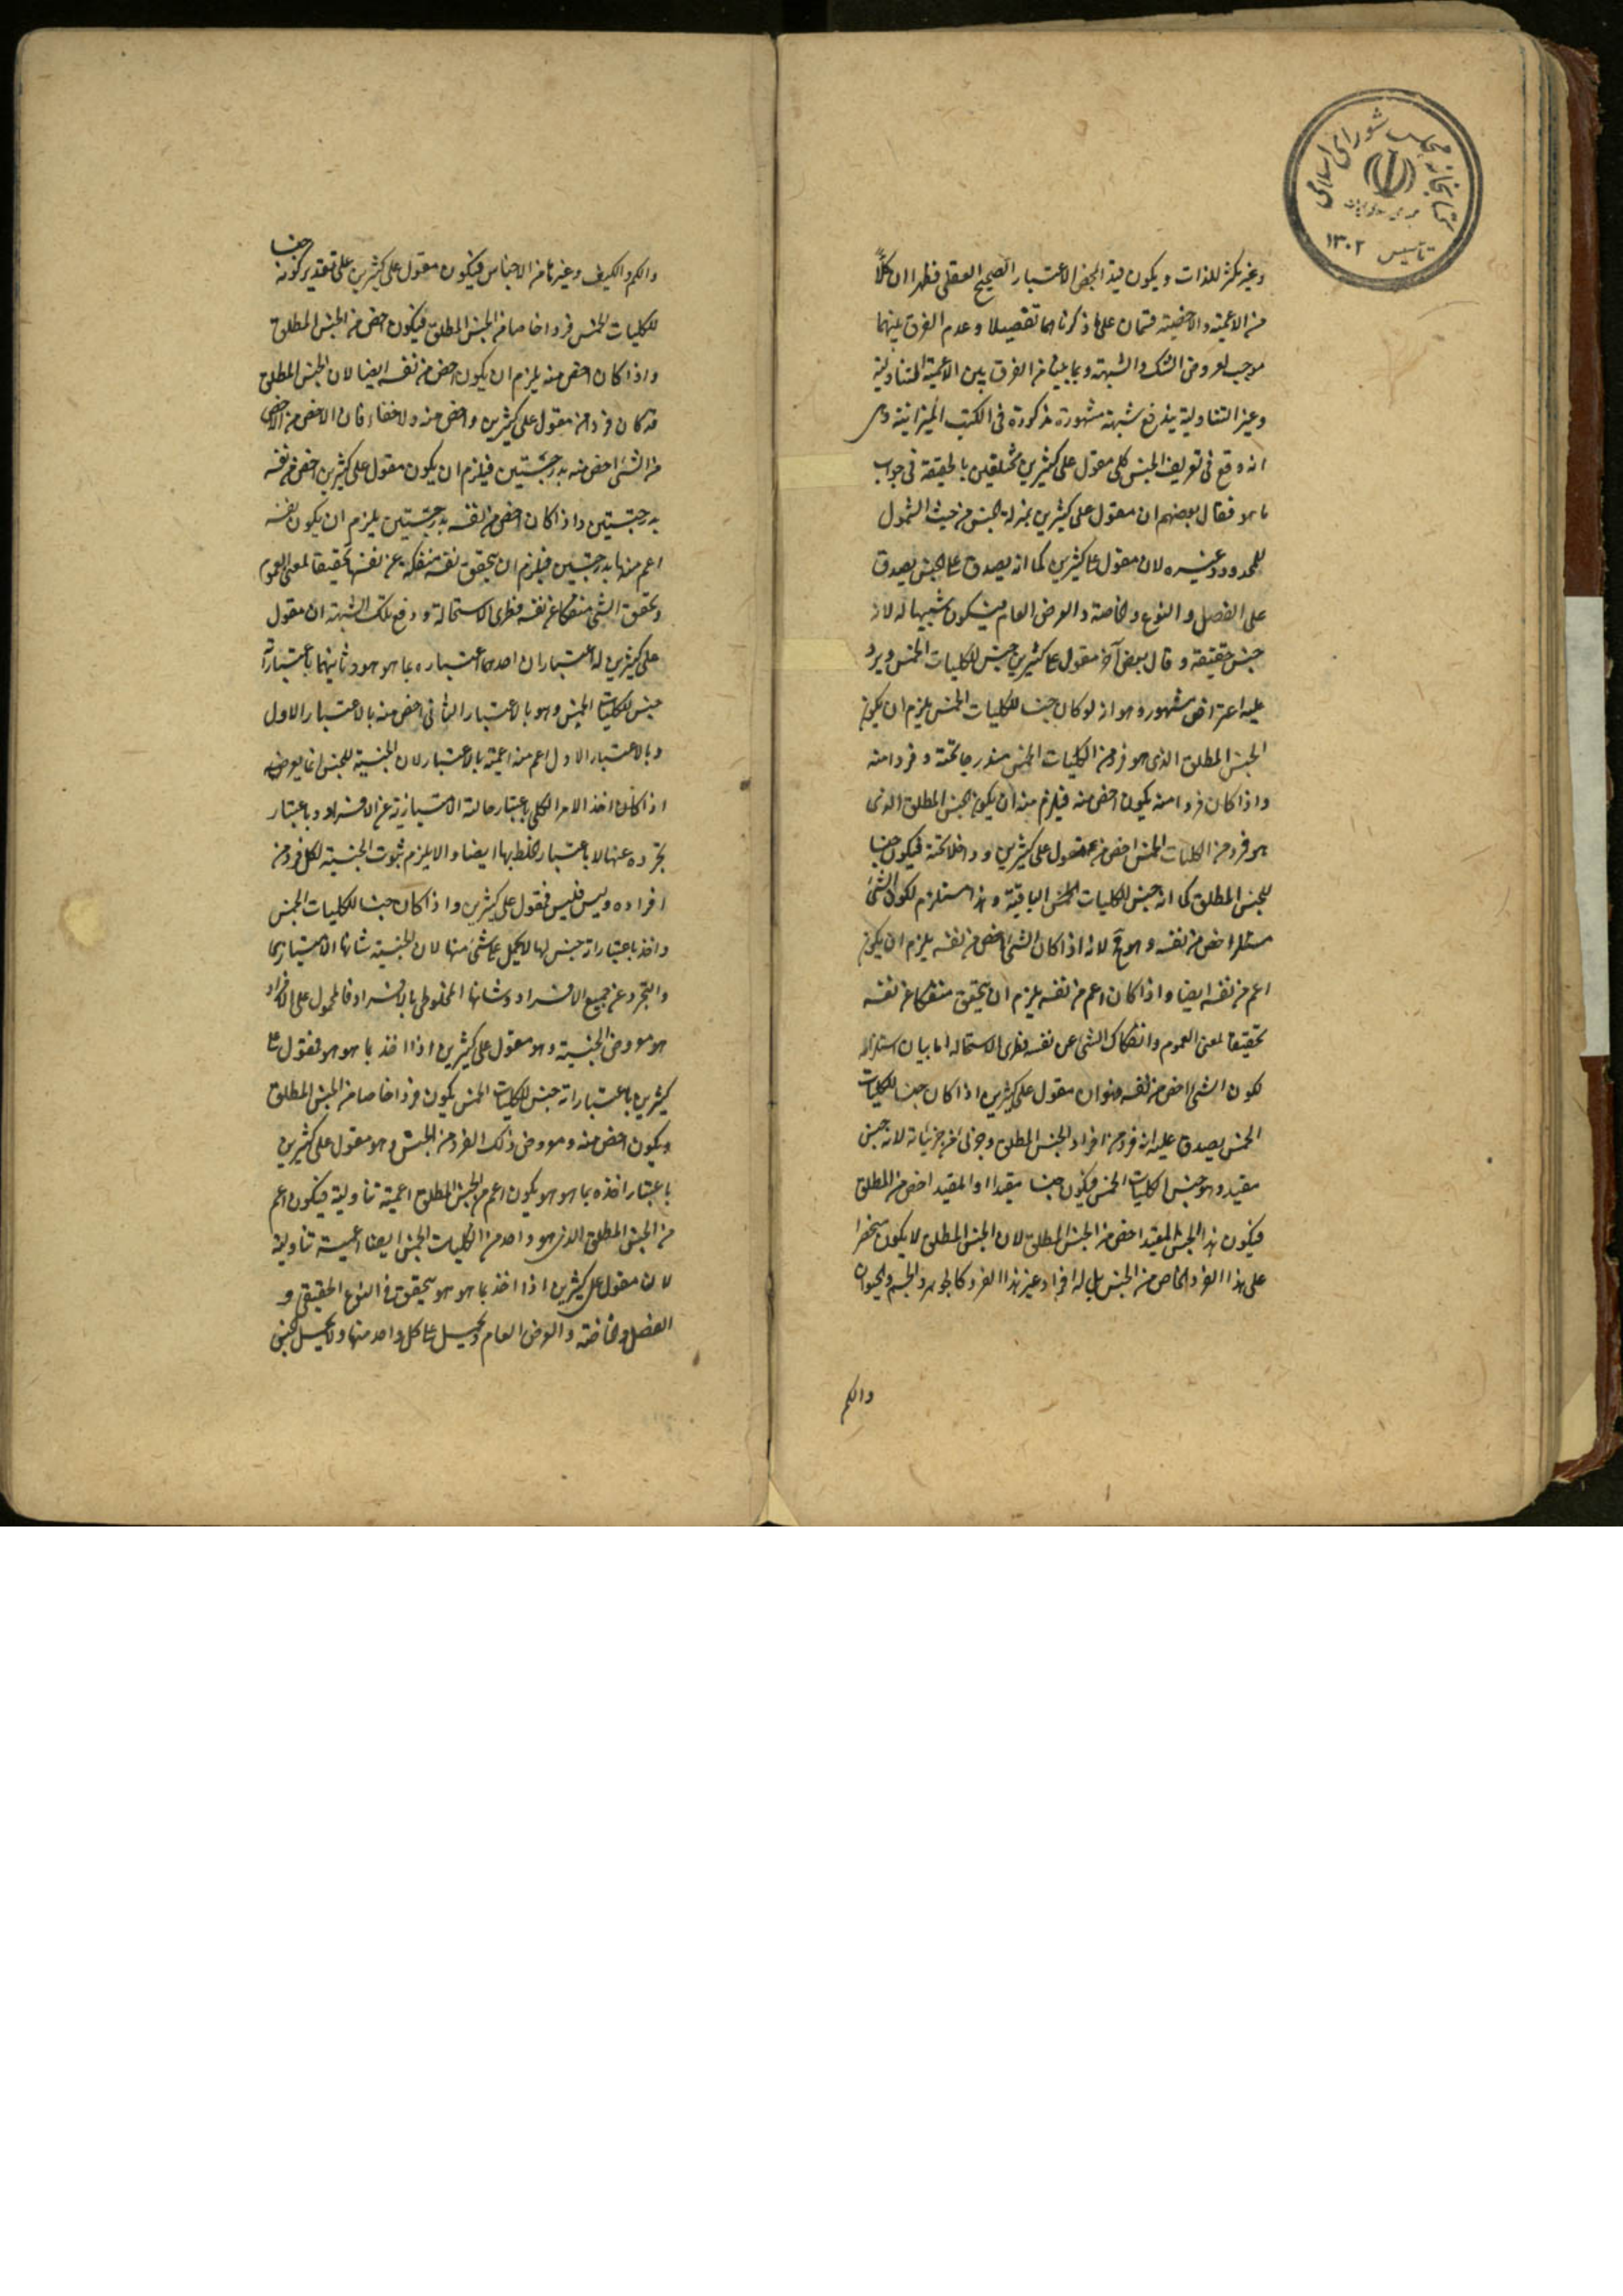 كتابخانه مجلس شورای اسلامی
تأسیس ۱۳۰۲
وغير مكثر للذات ويكون قيد المحض الاعتبار الصحيح العقلى فظهر ان كلاً
من الاعمية والاخصية قسمان على ما ذكرناهما تفصيلا وعدم الفرق بينهما
موجب لعروض الشك والشبهة وبما بينا من الفرق بين الاعمية التناولية
وغير التناولية يندفع شبهة مشهورة مذكورة فى الكتب الميزانية وهى
انه وقع فى تعريف الجنس كلى مقول على كثيرين مختلفين بالحقيقة فى جواب
ما هو فقال بعضهم ان مقول على كثيرين بمنزلة الجنس من حيث الشمول
للمحدود وغيره لان مقول على كثيرين كما انه يصدق على الجنس يصدق
على الفصل والنوع والخاصة والعرض العام فيكون شبيها له لانه
جنس حقيقة وقال بعض آخر مقول على كثيرين جنس للكليات الخمس ويرد
عليه اعتراض مشهور وهو انه لو كان جنسا للكليات الخمس يلزم ان يكون
الجنس المطلق الذى هو فرد من الكليات الخمس مندرجا تحته وفردا منه
واذا كان فردا منه يكون اخص منه فيلزم منه ان يكون الجنس المطلق الذى
هو فرد من الكليات الخمس اخص من مقول على كثيرين وداخلا تحته فيكون جنسا
للجنس المطلق كما انه جنس للكليات الخمس الباقية وهذا مستلزم لكون الشئ
اخص من نفسه وهو مح لانه اذا كان الشئ اخص من نفسه يلزم ان يكون
اعم من نفسه ايضا واذا كان اعم من نفسه يلزم ان يتحقق منفكا عن نفسه
تحقيقا لمعنى العموم وانفكاك الشئ عن نفسه فطرى الاستحالة اما بيان استلزامه
لكون الشئ اخص من نفسه فهو ان مقول على كثيرين اذا كان جنسا للكليات
الخمس يصدق عليه انه فرد من افراد الجنس المطلق وجزئى من جزئياته لانه جنس
مقيد وهو جنس الكليات الخمس فيكون جنسا مقيدا والمقيد اخص من المطلق
فيكون هذا الجنس المقيد اخص من الجنس المطلق لان الجنس المطلق لا يكون منحصرا
على هذا الفرد الخاص من الجنس بل له افراد غير هذا الفرد كالجوهر والجسم والحيوان
والكم
والكم والكيف وغيرها من الاجناس فيكون مقول على كثيرين على تقدير كونه جنسا
للكليات الخمس فردا خاصا من الجنس المطلق فيكون اخص من الجنس المطلق
واذا كان اخص منه يلزم ان يكون اخص من نفسه ايضا لان الجنس المطلق
قد كان فردا من مقول على كثيرين واخص منه ولا خفاء فان الاخص من الاخص
من الشئ اخص منه بدرجتين فيلزم ان يكون مقول على كثيرين اخص من نفسه
بدرجتين واذا كان اخص من نفسه بدرجتين يلزم ان يكون نفسه
اعم منها بدرجتين فيلزم ان يتحقق نفسه منفكة عن نفسها تحقيقا لمعنى العموم
وتحقق الشئ منفكا عن نفسه فطرى الاستحالة ودفع تلك الشبهة ان مقول
على كثيرين له اعتباران احدهما اعتباره بما هو هو وثانيهما باعتبار انه
جنس للكليات الخمس وهو بالاعتبار الثانى اخص منه بالاعتبار الاول
وبالاعتبار الاول اعم منه اعمية بالاعتبار لان الجنسية للجنس انما يعرضه
اذا كان اخذ الامر الكلى باعتبار حالته الامتيازية عن الافراد وباعتبار
تجرده عنها لا باعتبار خلطه بها ايضا والا يلزم ثبوت الجنسية لكل فرد من
افراده وليس فليس فمقول على كثيرين واذا كان جنسا للكليات الخمس
واخذ باعتبار انه جنس لها لا يحمل على شئ منها لان الجنسية شانها الامتياز
والتجرد عن جميع الافراد وشانها المخلوطى بالافراد فالمحمول على الافراد
هو معروض الجنسية وهو مقول على كثيرين اذا اخذ بما هو هو فمقول على
كثيرين باعتبار انه جنس للكليات الخمس يكون فردا خاصا من الجنس المطلق
ويكون اخص منه ومعروض ذلك الفرد من الجنس وهو مقول على كثيرين
باعتبار اخذه بما هو هو يكون اعم من الجنس المطلق اعمية تناولية فيكون اعم
من الجنس المطلق الذى هو واحد من الكليات الخمس ايضا اعمية تناولية
لان مقول على كثيرين اذا اخذ بما هو هو يتحقق فى النوع الحقيقى و
الفصل والخاصة والعرض العام ويحمل على كل واحد منها ولا يحمل الجنس